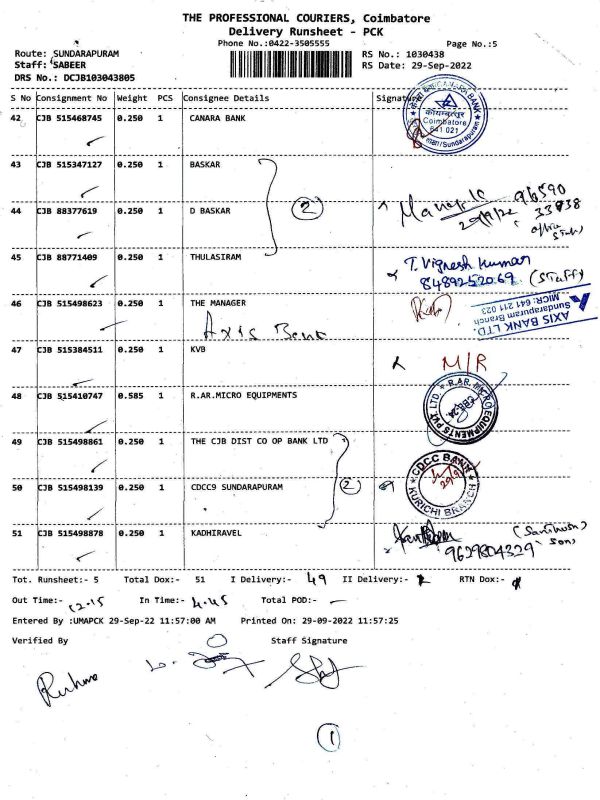 THE PROFESSIONAL COURIERS, Coimbatore
Delivery Runsheet - PCK
Phone No.:0422-3505555
Page No.:5
Route: SUNDARAPURAM
RS No.: 1030438
Staff: SABEER
RS Date: 29-Sep-2022
DRS No.: DCJB103043805
S No Consignment No Weight PCS Consignee Details Signature
42 CJB 515468745 0.250 1 CANARA BANK
CANARA BANK
Coimbatore
641 021
43 CJB 515347127 0.250 1 BASKAR
2
96590
44 CJB 88377619 0.250 1 D BASKAR
29/9/22
45 CJB 88771409 0.250 1 THULASIRAM
T. Vignesh Kumar
8489252069 (Staff)
46 CJB 515498623 0.250 1 THE MANAGER
Axis Bank
AXIS BANK LTD.
Sundarapuram Branch
MICR: 641 211 023
47 CJB 515384511 0.250 1 KVB
M/R
48 CJB 515410747 0.585 1 R.AR.MICRO EQUIPMENTS
R.AR. MICRO EQUIPMENTS PVT. LTD.
CBE-24.
49 CJB 515498861 0.250 1 THE CJB DIST CO OP BANK LTD
CDCC BANK
KURICHI BRANCH
50 CJB 515498139 0.250 1 CDCC9 SUNDARAPURAM
2
51 CJB 515498878 0.250 1 KADHIRAVEL
9629804329
Son)
Tot. Runsheet:- 5 Total Dox:- 51 I Delivery:- 49 II Delivery:- RTN Dox:-
Out Time:- 12.15 In Time:- 4.45 Total POD:- —
Entered By :UMAPCK 29-Sep-22 11:57:00 AM Printed On: 29-09-2022 11:57:25
Verified By Staff Signature
1